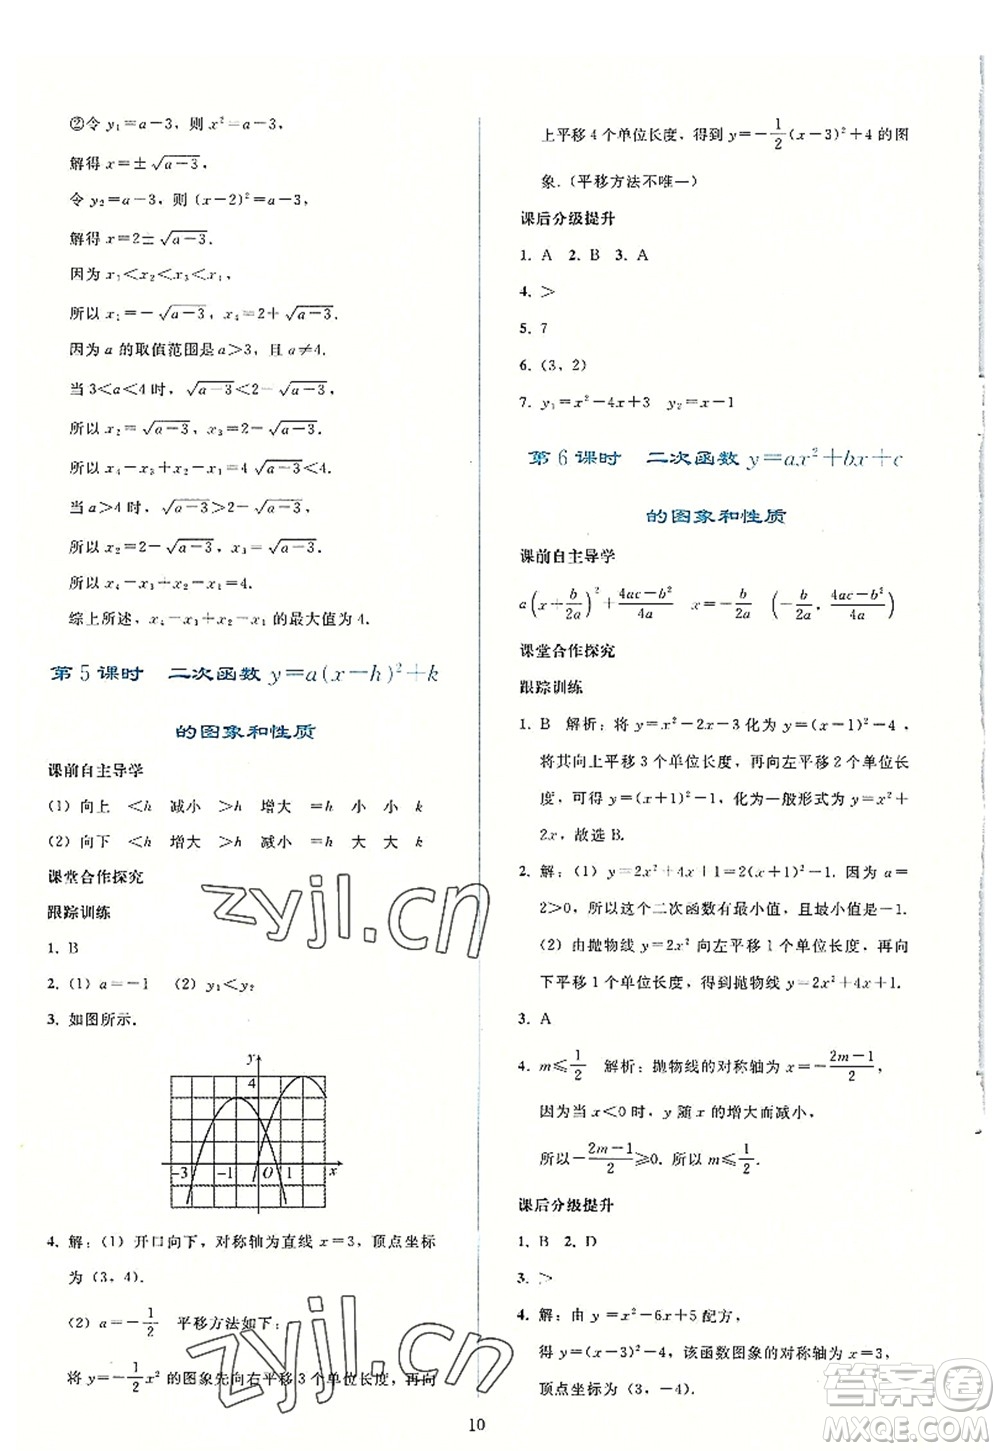 ②令 y₁=a-3，则 x²=a-3，
解得 x=±√(a-3)，
令 y₂=a-3，则 (x-2)²=a-3，
解得 x=2±√(a-3)，
因为 x₁<x₂<x₃<x₄，
所以 x₁=-√(a-3)，x₄=2+√(a-3).
因为 a 的取值范围是 a>3，且 a≠4.
当 3<a<4 时，√(a-3)<2-√(a-3)，
所以 x₂=√(a-3)，x₃=2-√(a-3)，
所以 x₄-x₃+x₂-x₁=4√(a-3)<4，
当 a>4 时，√(a-3)>2-√(a-3)，
所以 x₂=2-√(a-3)，x₃=√(a-3)，
所以 x₄-x₃+x₂-x₁=4，
综上所述，x₄-x₃+x₂-x₁的最大值为 4.
第 5 课时 二次函数 y=a(x-h)²+k
的图象和性质
课前自主导学
(1) 向上 <h 减小 >h 增大 =h 小 小 k
(2) 向下 <h 增大 >h 减小 =h 大 大 k
课堂合作探究
跟踪训练
1. B
2. (1) a=-1 (2) y₁<y₂
3. 如图所示.
y
4
-3 -1 O 1 3 x
4. 解：(1) 开口向下，对称轴为直线 x=3，顶点坐标
为 (3，4).
(2) a=-1/2 平移方法如下：
将 y=-1/2x² 的图象先向右平移 3 个单位长度，再向
上平移 4 个单位长度，得到 y=-1/2(x-3)²+4 的图
象.(平移方法不唯一)
课后分级提升
1. A 2. B 3. A
4. >
5. 7
6. (3，2)
7. y₁=x²-4x+3 y₂=x-1
第 6 课时 二次函数 y=ax²+bx+c
的图象和性质
课前自主导学
a(x+b/2a)²+(4ac-b²)/4a x=-b/2a (-b/2a，(4ac-b²)/4a)
课堂合作探究
跟踪训练
1. B 解析：将 y=x²-2x-3 化为 y=(x-1)²-4，
将其向上平移 3 个单位长度，再向左平移 2 个单位长
度，可得 y=(x+1)²-1，化为一般形式为 y=x²+
2x，故选 B.
2. 解：(1) y=2x²-4x+1=2(x-1)²-1. 因为 a=
2>0，所以这个二次函数有最小值，且最小值是-1.
(2) 由抛物线 y=2x² 向左平移 1 个单位长度，再向
下平移 1 个单位长度，得到抛物线 y=2x²+4x+1.
3. A
4. m≤1/2 解析：抛物线的对称轴为 x=-(2m-1)/2，
因为当 x<0 时，y 随 x 的增大而减小，
所以-(2m-1)/2≥0. 所以 m≤1/2.
课后分级提升
1. B 2. D
3. >
4. 解：由 y=x²-6x+5 配方，
得 y=(x-3)²-4，该函数图象的对称轴为 x=3，
顶点坐标为 (3，-4).
10
zyjl.cn
zyjl.cn
答案圈
MXQE.COM